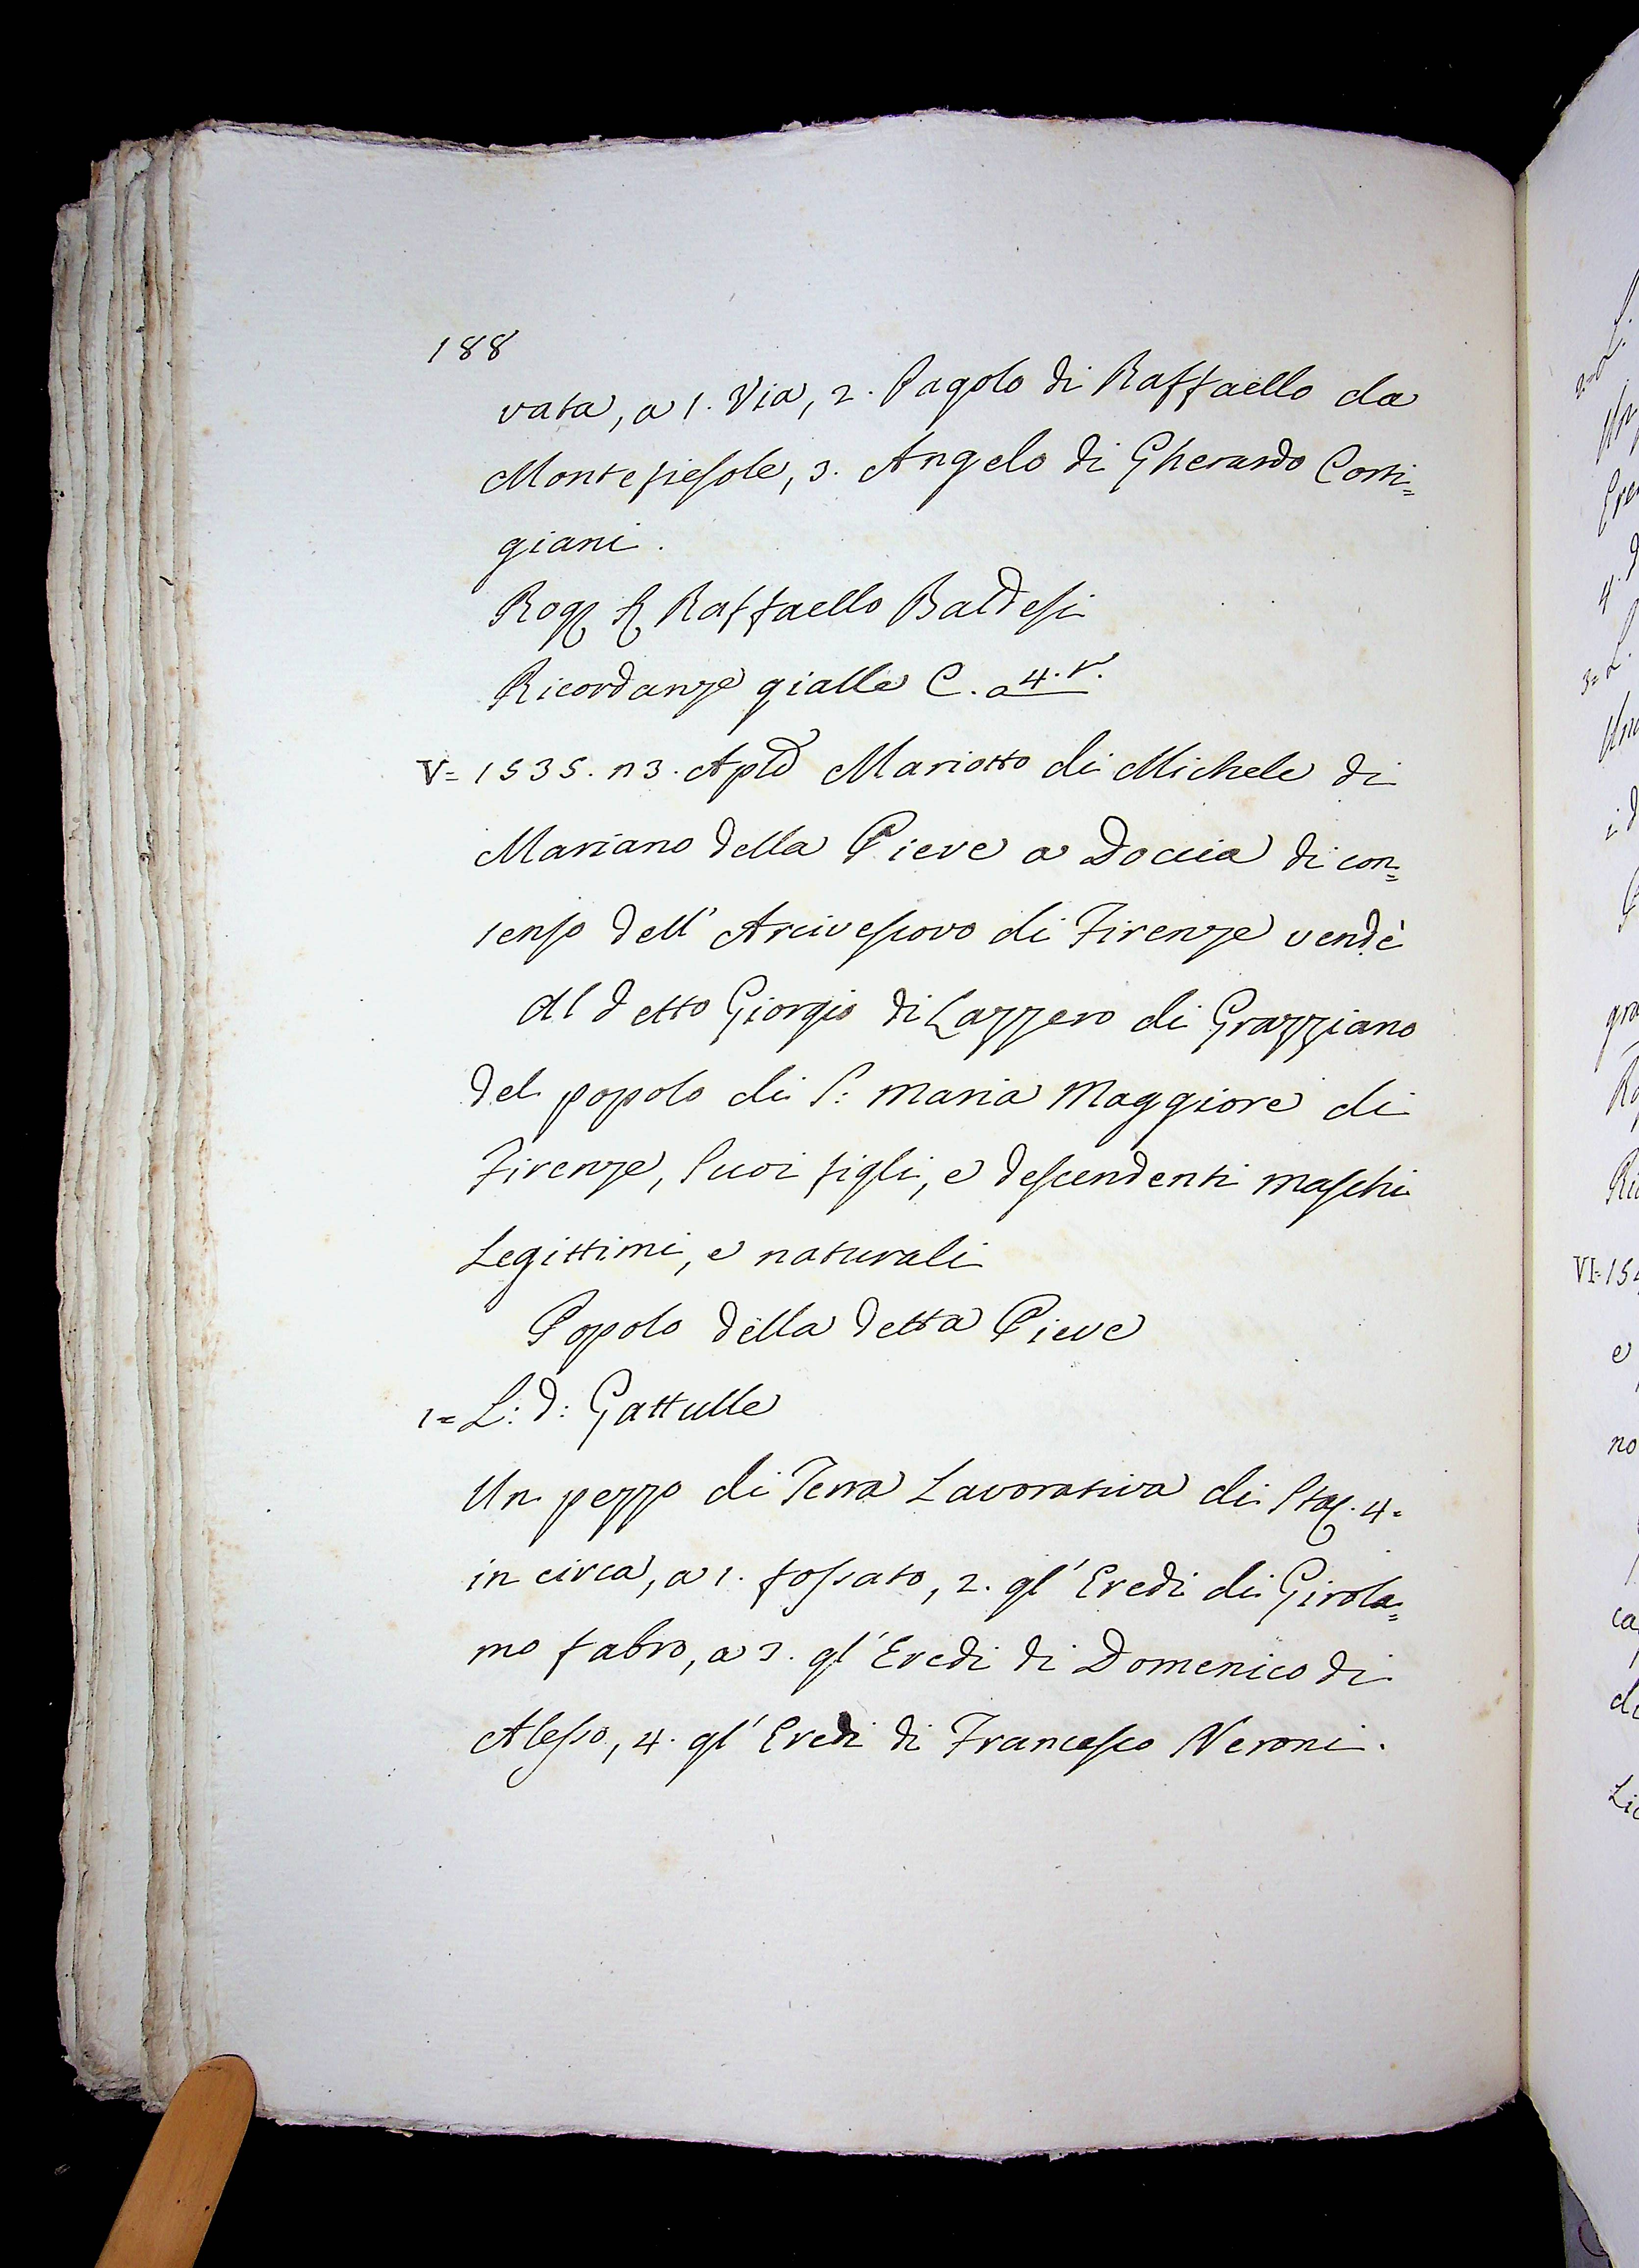 188
vata, a 1. Via, 2. Pagolo di Raffaello da
Montefiesole, 3. Angelo di Gherardo Corti=
giani.
Rog Raffaello Baldesi
Ricordanze gialle C. a 4. r.
V= 1535. n 3. Aple Mariotto di Michele di
Mariano della Pieve a Doccia di con=
senso dell' Arcivescovo di Firenze vendè
Al detto Giorgio di Lazzero di Grazziano
del popolo di S: Maria Maggiore di
Firenze, Suoi figli, e descendenti maschi
Legittimi, e naturali
Popolo della detta Pieve
1= L: d: Gattulle
Un pezzo di Terra Lavorativa di Sta. 4=
in circa, a 1. fossato, 2. gl' Eredi di Girola=
mo fabro, a 3. gl' Eredi di Domenico di
Alesso, 4. gl' Eredi di Francesco Neroni.